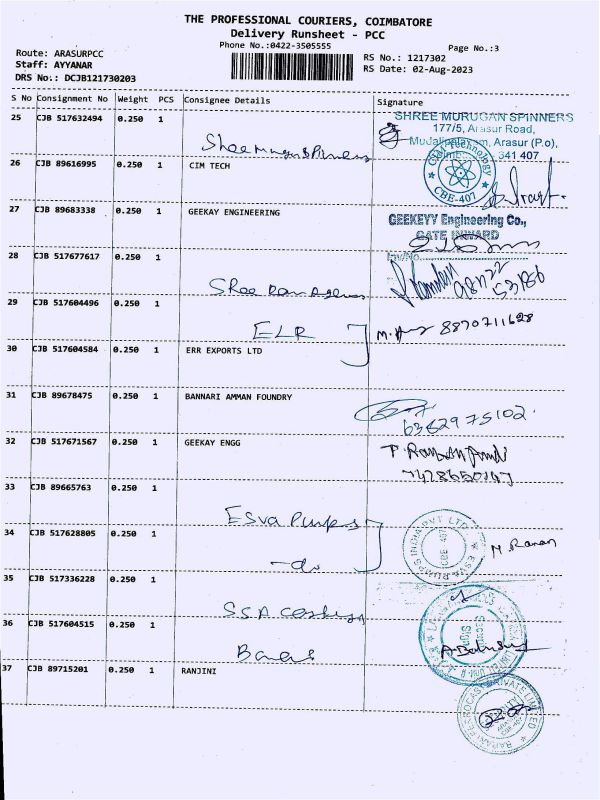 THE PROFESSIONAL COURIERS, COIMBATORE
Delivery Runsheet - PCC
Phone No.:0422-3505555
Page No.:3
Route: ARASURPCC
Staff: AYYANAR
DRS No.: DCJB121730203
RS No.: 1217302
RS Date: 02-Aug-2023
S No Consignment No Weight PCS Consignee Details Signature
25 CJB 517632494 0.250 1
SHREE MURUGAN SPINNERS
177/5, Arasur Road,
Arasur (P.o),
641 407
26 CJB 89616995 0.250 1 CIM TECH
Technology
CBE-407
27 CJB 89683338 0.250 1 GEEKAY ENGINEERING
GEEKEYY Engineering Co.,
GATE INWARD
28 CJB 517677617 0.250 1
29 CJB 517604496 0.250 1
ELR
8870711628
30 CJB 517604584 0.250 1 ERR EXPORTS LTD
31 CJB 89678475 0.250 1 BANNARI AMMAN FOUNDRY
6362975102
32 CJB 517671567 0.250 1 GEEKAY ENGG
33 CJB 89665763 0.250 1
Esva Pumps
34 CJB 517628805 0.250 1
-do
ESVA PUMPS INDIA PVT LTD
M. Raman
35 CJB 517336228 0.250 1
SSA
36 CJB 517604515 0.250 1
37 CJB 89715201 0.250 1 RANJINI
PRIVATE LIMITED